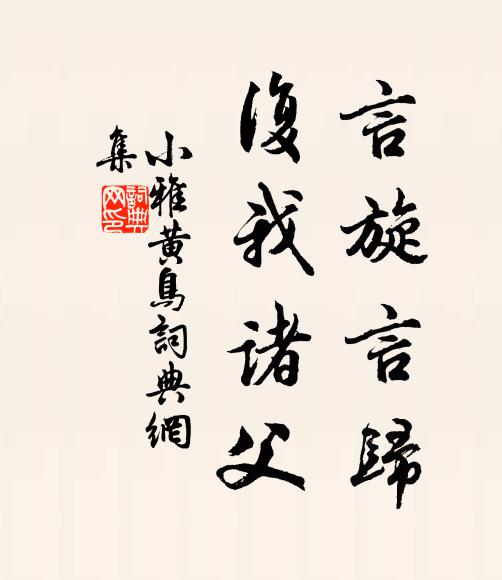 言旋言歸
復我诸父
小雅黄鳥詞典網
集
詞典
网印